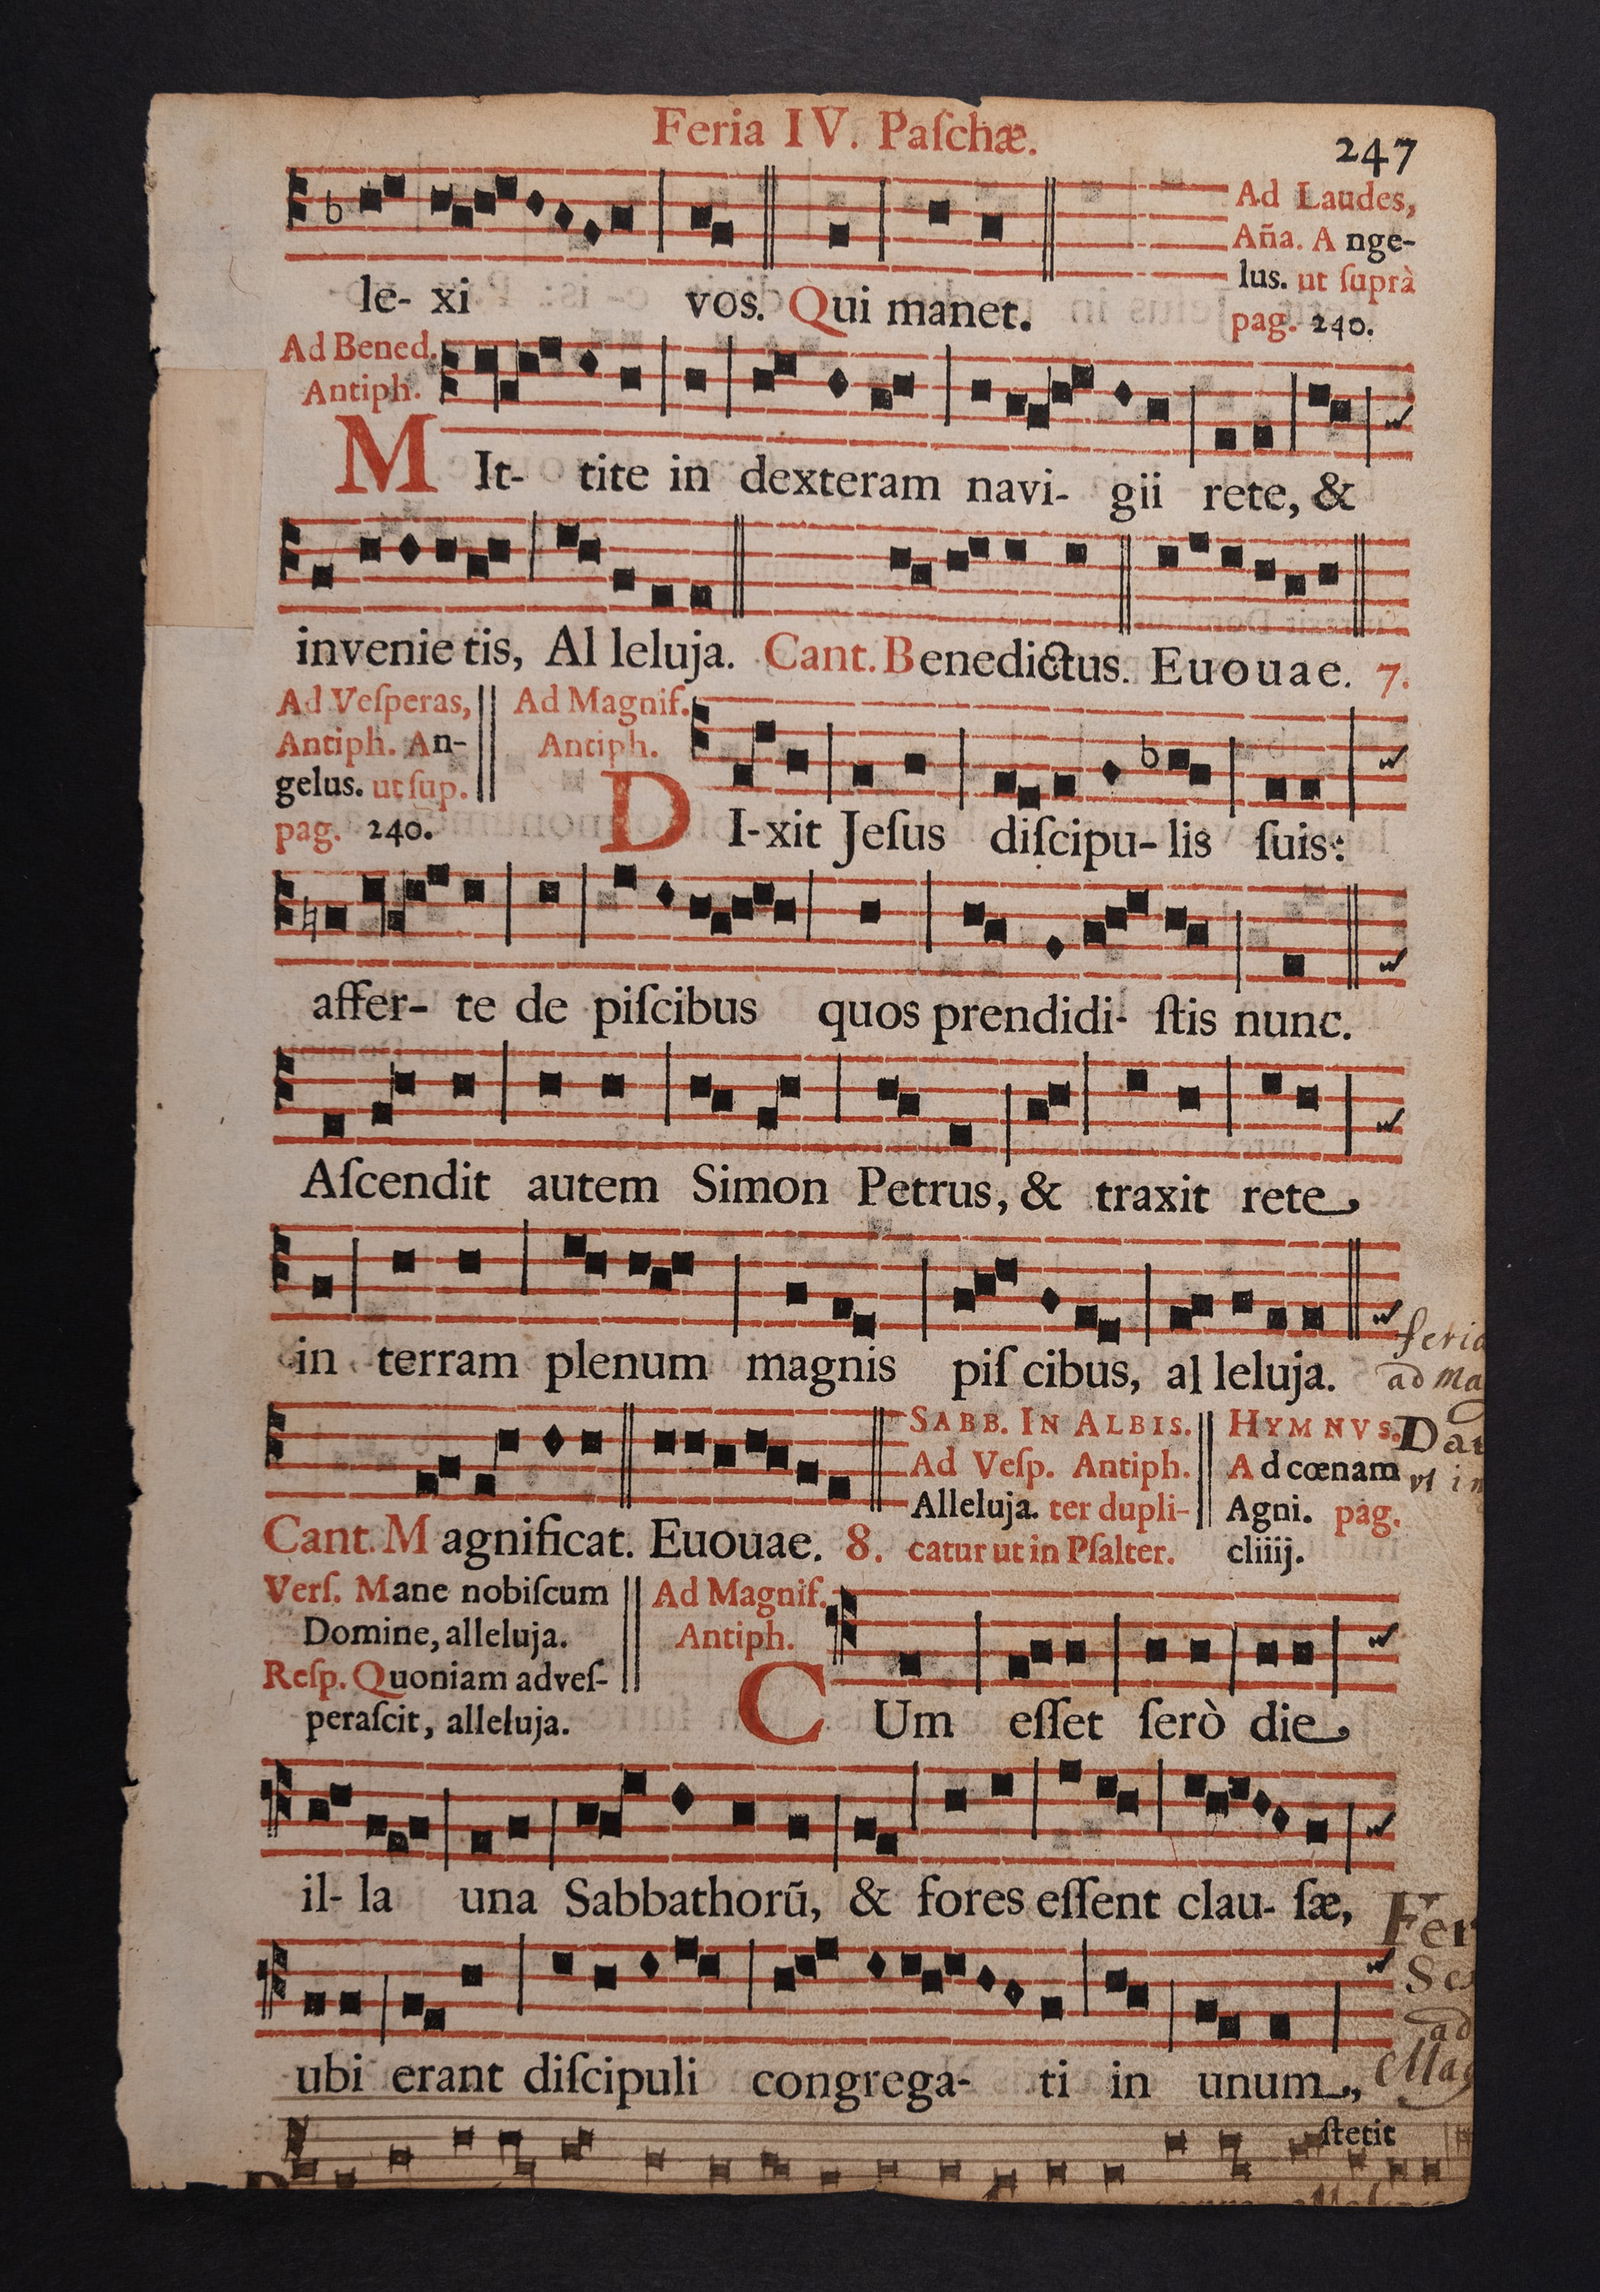 Feria IV. Paſchæ.
247
Ad Laudes,
Aña. A nge-
lus. ut ſuprà
pag. 240.
le- xi vos. Qui manet.
Ad Bened.
Antiph.
M It- tite in dexteram navi- gii rete, &
invenie tis, Al leluja. Cant. Benedictus. Euouae. 7.
Ad Veſperas,
Antiph. An-
gelus. ut ſup.
pag. 240.
Ad Magnif.
Antiph.
D I-xit Jeſus diſcipu- lis ſuis:
affer- te de piſcibus quos prendidi- ſtis nunc.
Aſcendit autem Simon Petrus, & traxit rete
in terram plenum magnis piſ cibus, al leluja.
feria
ad Ma
Cant. M agnificat. Euouae. 8.
SABB. IN ALBIS.
Ad Veſp. Antiph.
Alleluja. ter dupli-
catur ut in Pſalter.
HYMNVS.
A d cœnam
Agni. pag.
cliiij.
Verſ. Mane nobiſcum
Domine, alleluja.
Reſp. Quoniam adveſ-
peraſcit, alleluja.
Ad Magnif.
Antiph.
C Um eſſet ſerò die
il- la una Sabbathorū, & fores eſſent clau- ſæ,
Fer
ad
Mag
ubi erant diſcipuli congrega- ti in unum,
ſtetit